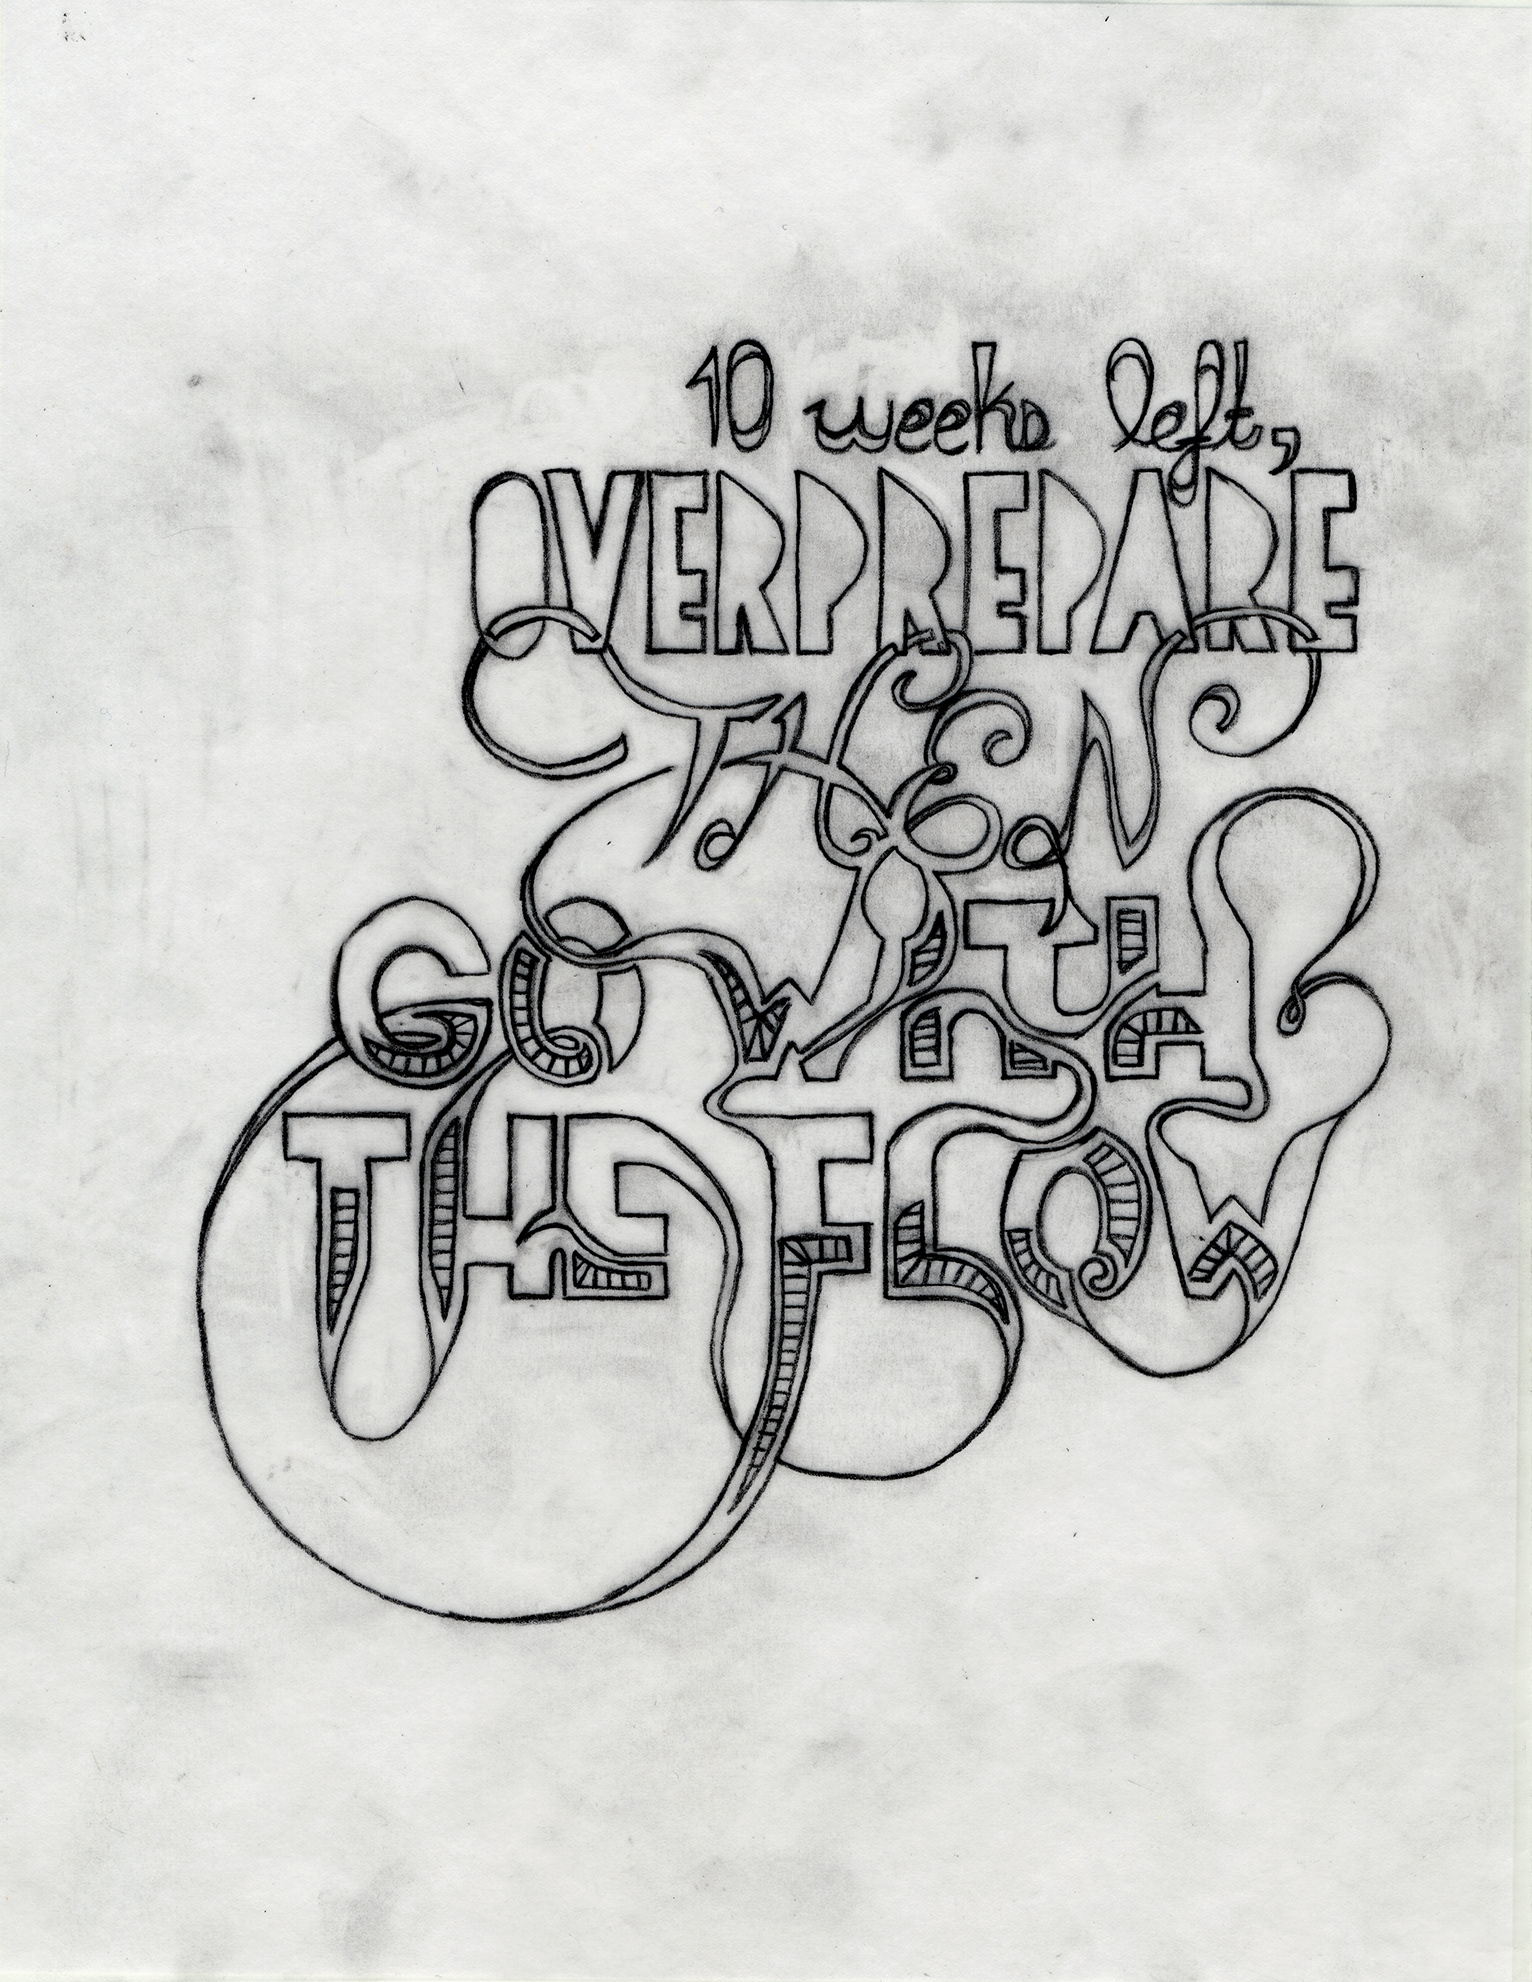 10 weeks left,
OVERPREPARE
THEN
GO WITH
THE FLOW